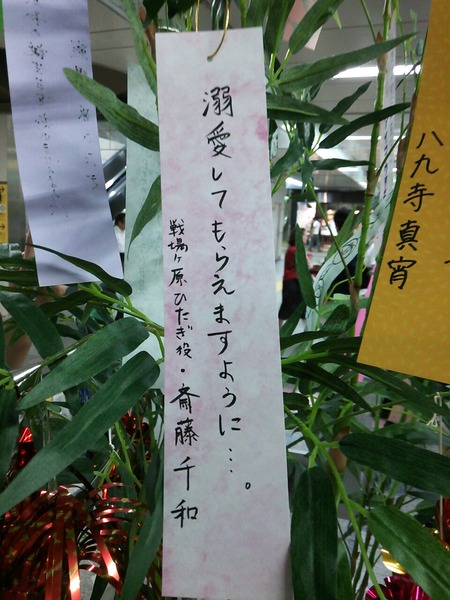 溺愛してもらえますように…。
戦場ヶ原ひたぎ役・斎藤千和
八九寺真宵